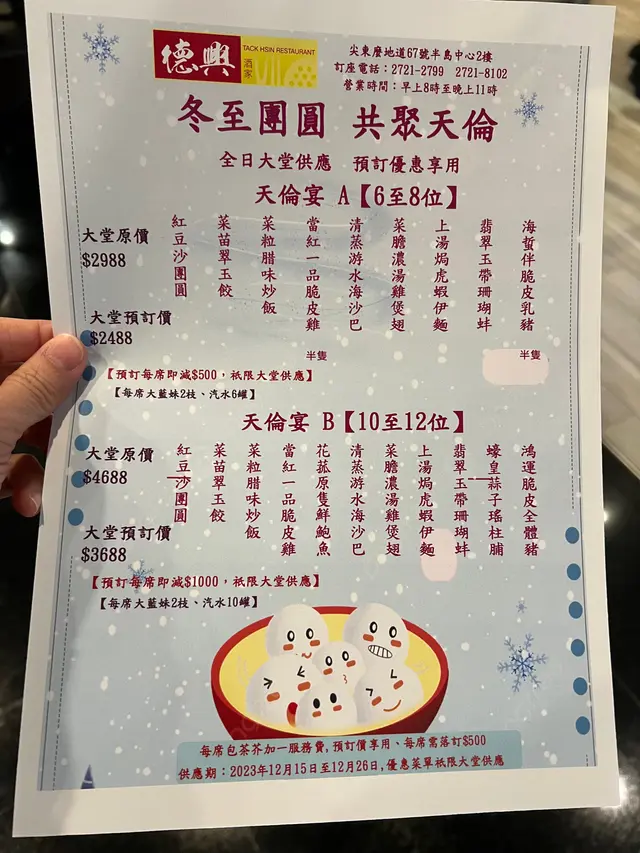 德興
TACK HSIN RESTAURANT
酒家
尖東麼地道67號半島中心2樓
訂座電話：2721-2799 2721-8102
營業時間：早上8時至晚上11時
冬至團圓 共聚天倫
全日大堂供應 預訂優惠享用
天倫宴 A【6至8位】
海蜇伴脆皮乳豬 半隻
翡翠玉帶珊瑚蚌
上湯焗虎蝦伊麵
菜膽濃湯雞煲翅
清蒸游水海沙巴
當紅一品脆皮雞 半隻
菜粒腊味炒飯
菜苗翠玉餃
紅豆沙團圓
大堂原價
$2988
大堂預訂價
$2488
【預訂每席即減$500，祇限大堂供應】
【每席大藍妹2枝、汽水6罐】
天倫宴 B【10至12位】
鴻運脆皮全體豬
蠔皇蒜子瑤柱脯
翡翠玉帶珊瑚蚌
上湯焗虎蝦伊麵
菜膽濃湯雞煲翅
清蒸游水海沙巴
花菰原隻鮮鮑魚
當紅一品脆皮雞
菜粒腊味炒飯
菜苗翠玉餃
紅豆沙團圓
大堂原價
$4688
大堂預訂價
$3688
【預訂每席即減$1000，祇限大堂供應】
【每席大藍妹2枝、汽水10罐】
每席包茶芥加一服務費,預訂價享用、每席需落訂$500
供應期：2023年12月15日至12月26日,優惠菜單祇限大堂供應